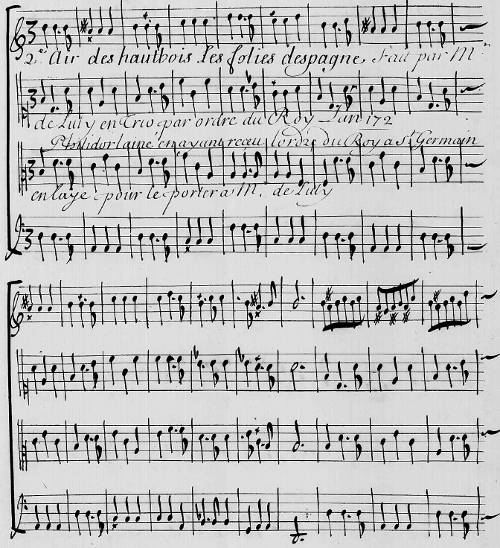 2.e Air des hautbois Les folies despagne, Fait par Mr
de Luly en Trio par ordre du Roy Lan 172
Philidor laine en ayant receu lordre du Roy a St Germain
en laye pour le porter a Mr. de Luly